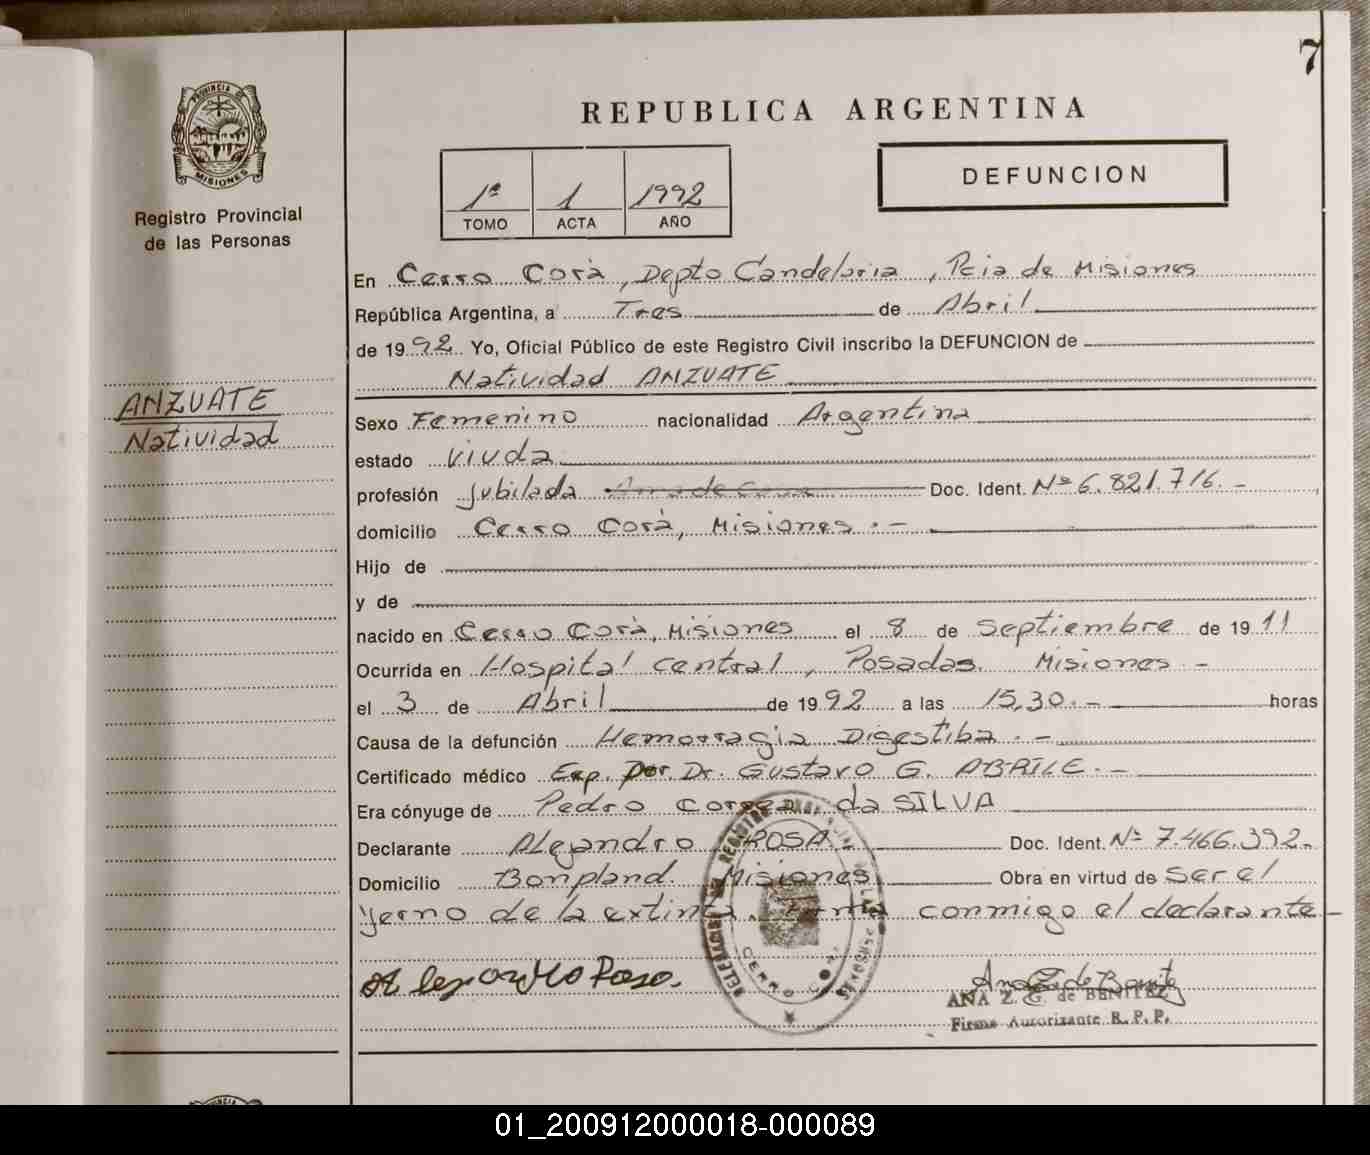 7
PROVINCIA DE
MISIONES
Registro Provincial
de las Personas
REPUBLICA ARGENTINA
1º 1 1992
TOMO ACTA AÑO
DEFUNCION
En Cerro Corà, Depto Candelaria, Pcia de Misiones
República Argentina, a Tres de Abril
de 1992 Yo, Oficial Público de este Registro Civil inscribo la DEFUNCION de
Natividad ANZUATE
ANZUATE
Natividad
Sexo Femenino nacionalidad Argentina
estado viuda
profesión Jubilada Ama de Casa Doc. Ident. Nº 6.821.716.-
domicilio Cerro Corà, Misiones.-
Hijo de
y de
nacido en Cerro Corà, Misiones el 8 de Septiembre de 1911
Ocurrida en Hospital Central, Posadas. Misiones-
el 3 de Abril de 1992 a las 15,30.- horas
Causa de la defunción Hemorragia Digestiba.-
Certificado médico Exp. Por Dr. Gustavo G. ABRILE.-
Era cónyuge de Pedro Correa da SILVA
Declarante Alejandro ROSA Doc. Ident. Nº 7.466.392.
Domicilio Bonpland. Misiones Obra en virtud de Ser el
Yerno de la extinta. Firma conmigo el declarante-
Alejandro Rosa.
CERRO CORA
Ana Z. G. de Benitez
ANA Z. G. de BENITEZ
Firma Autorizante R. P. P.
01_200912000018-000089